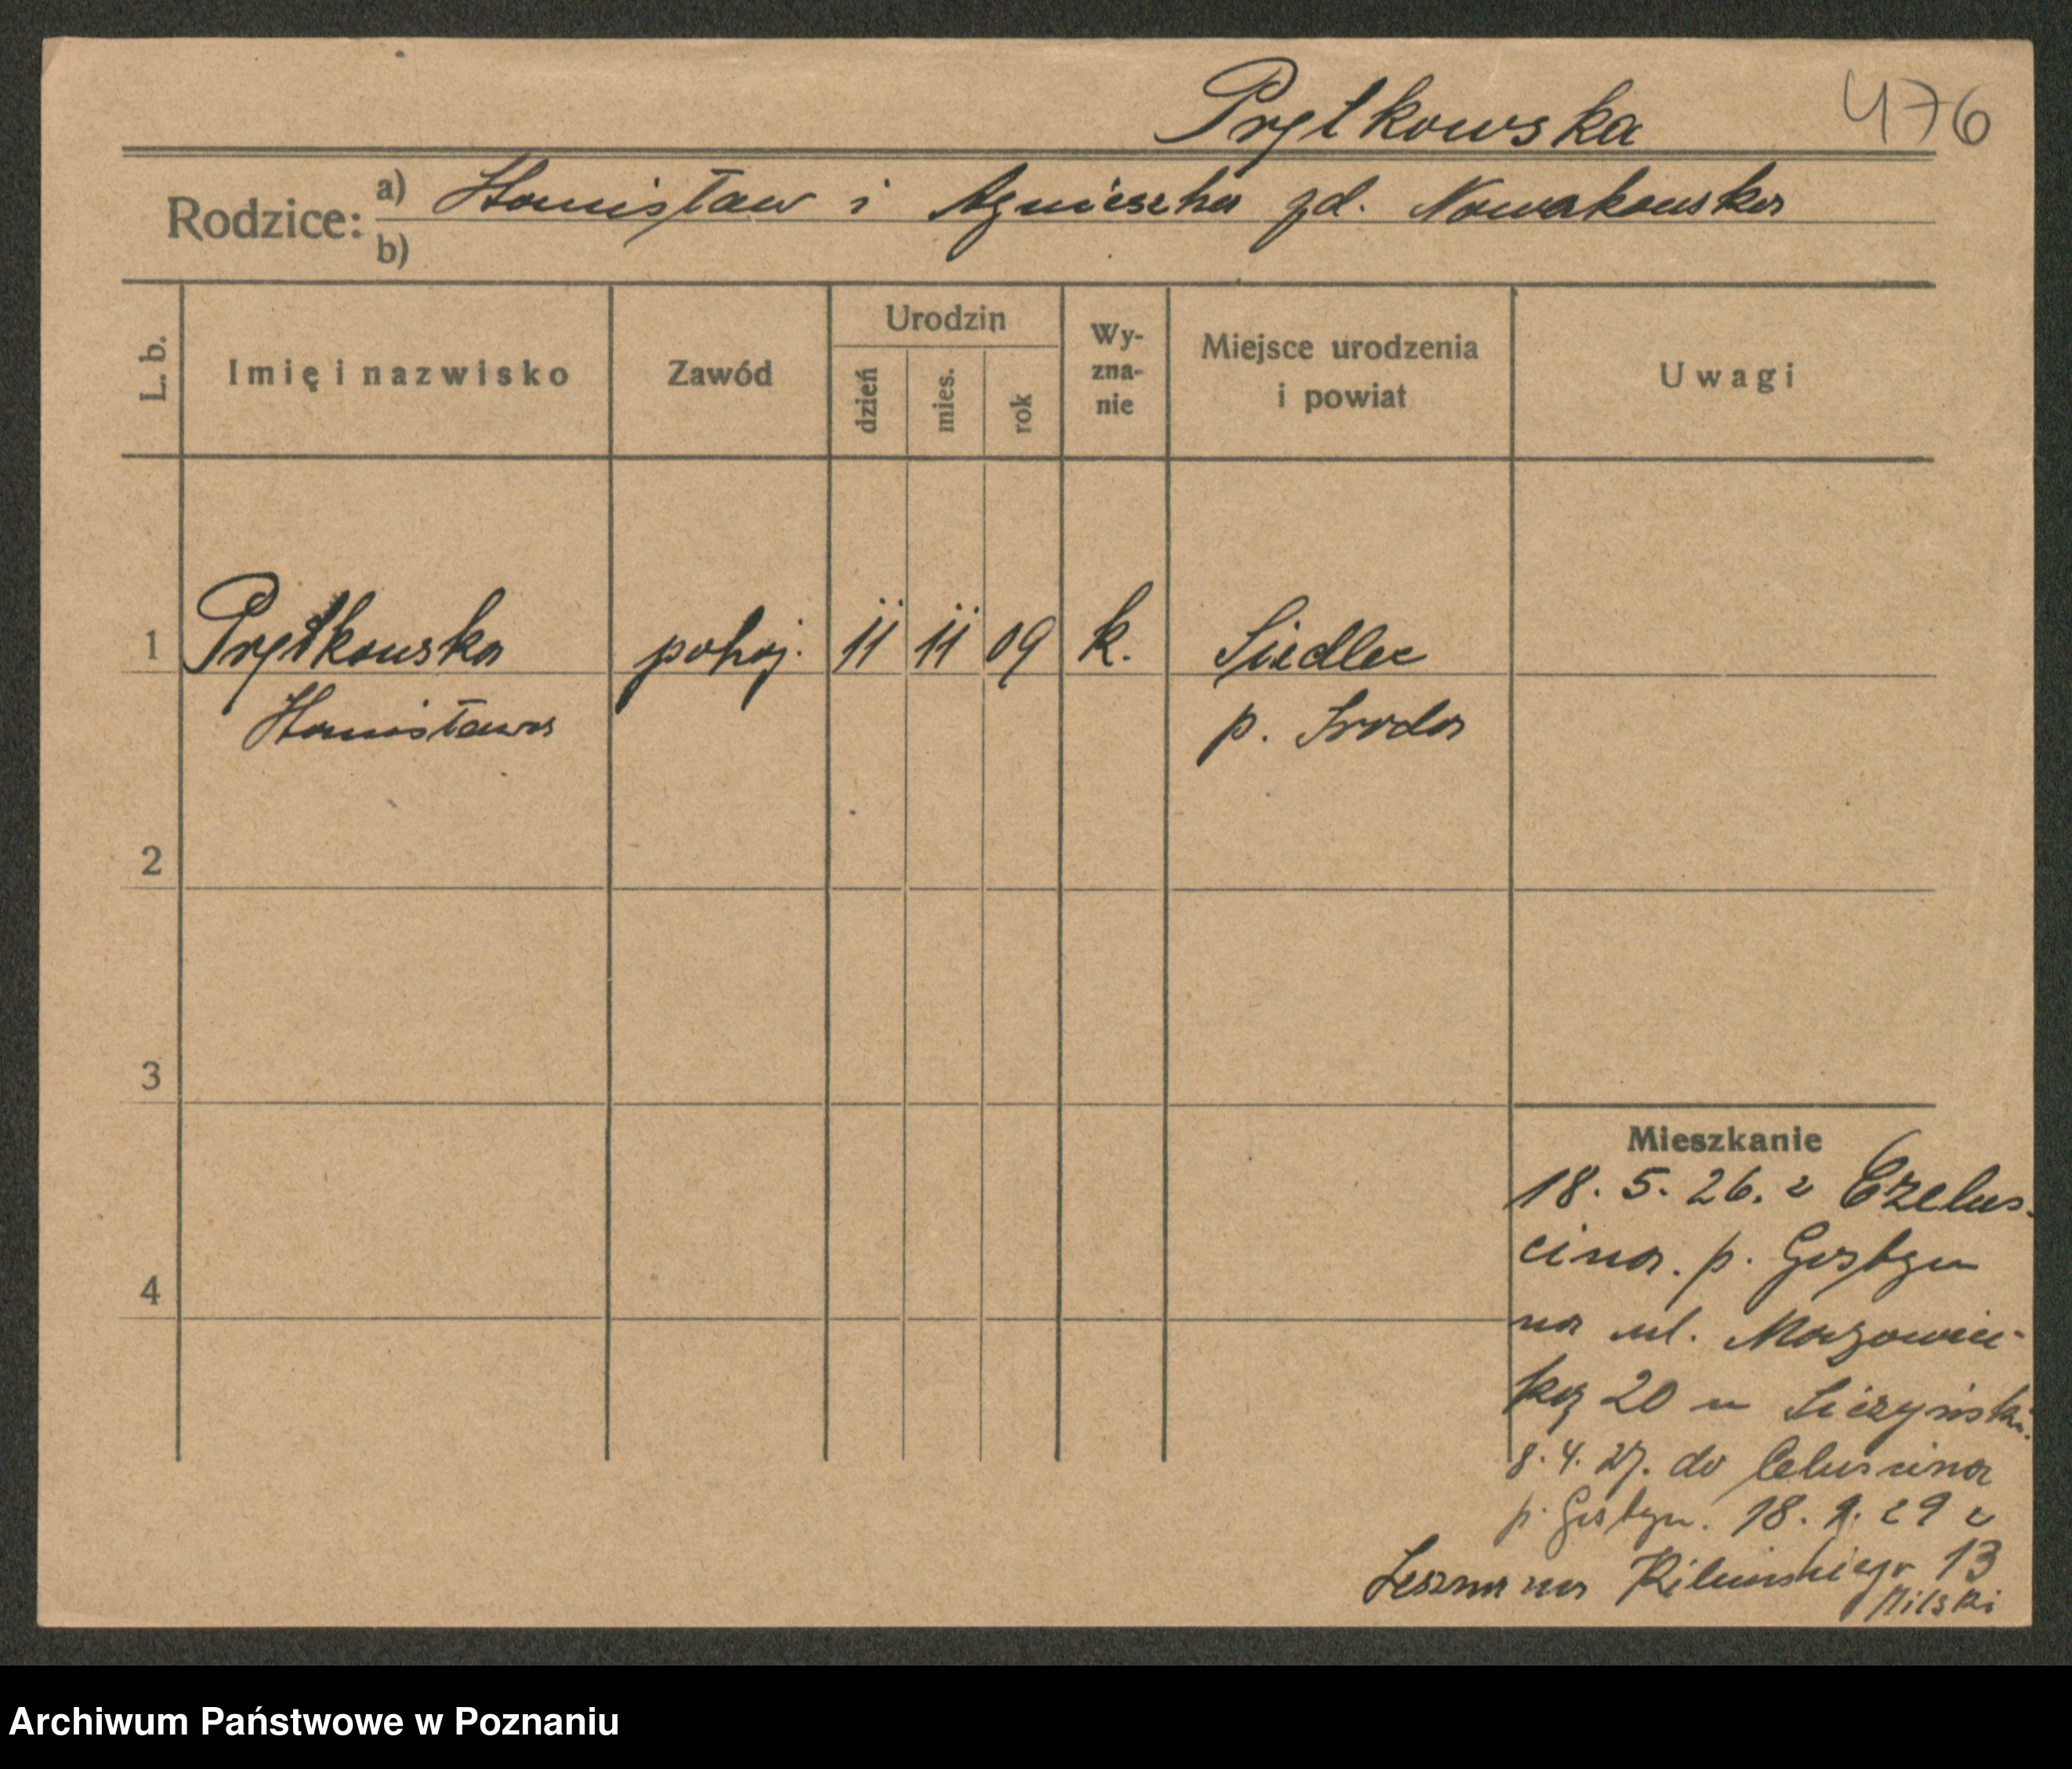 Prętkowska 476
Rodzice: a) Stanisław i Agnieszka zd. Nowakowska
b)
L. b. Imię i nazwisko Zawód Urodzin dzień mies. rok Wy-zna-nie Miejsce urodzenia i powiat Uwagi
1 Prętkowska pokoj. 11 11 09 k. Siedlec
Stanisława p. Środa
2
3
Mieszkanie
18. 5. 26. z Czelus-
cina. p. Gostyn
4
na ul. Mazowiec-
ką 20 u
8. 4. 27. do Celuscina
p. Gostyn. 18. 9. 29 z
Leszna na Kilinskiego 13
Milski
Archiwum Państwowe w Poznaniu